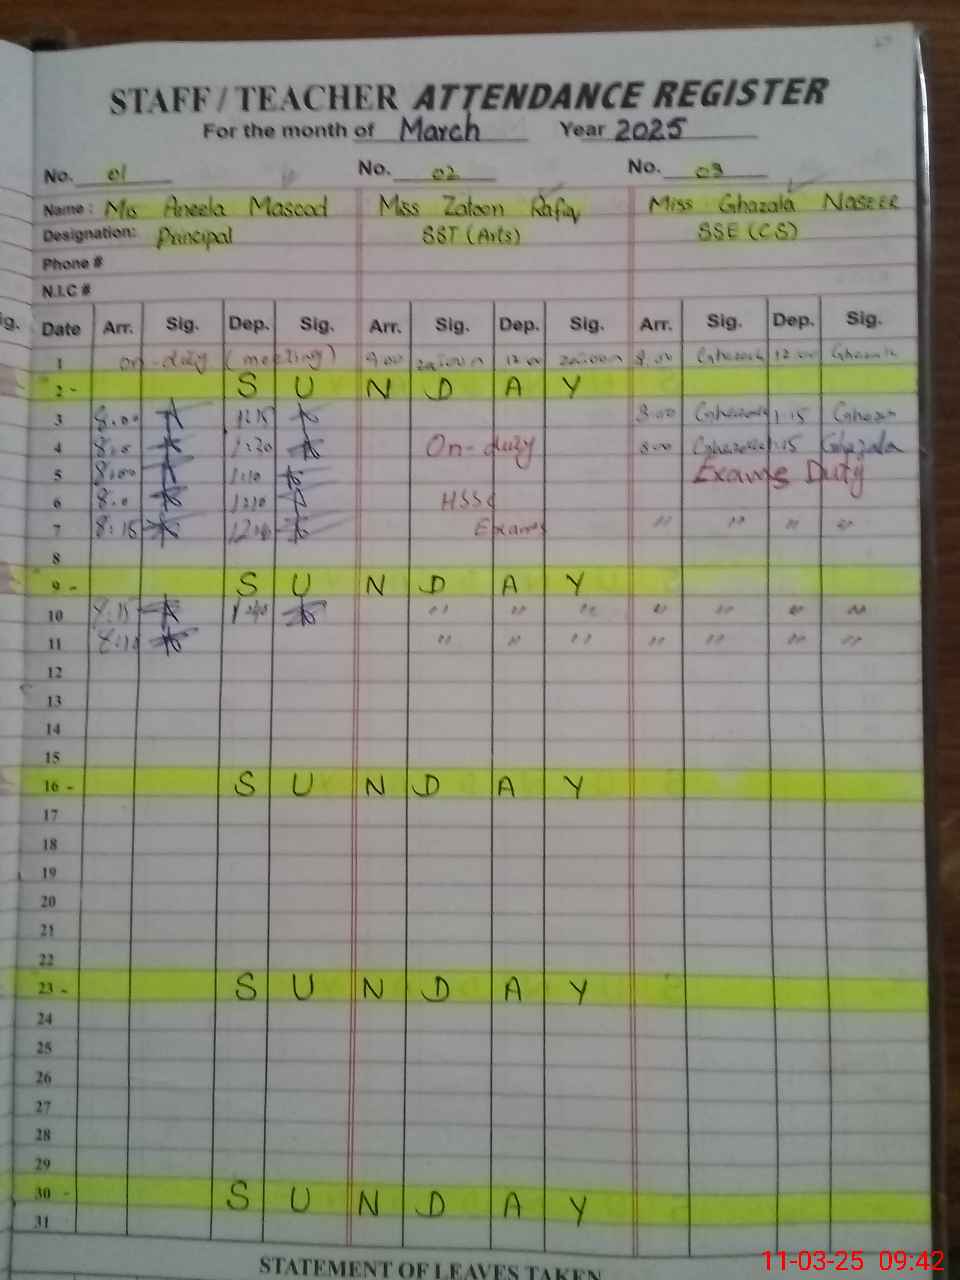 STAFF / TEACHER ATTENDANCE REGISTER
For the month of March Year 2025
No. 01 No. 02 No. 03
Name: Ms Aneela Masood Miss Zatoon Rafiq Miss Ghazala Naseer
Designation: Principal SST (Arts) SSE (CS)
Phone #
N.I.C #
ig. Date Arr. Sig. Dep. Sig. Arr. Sig. Dep. Sig. Arr. Sig. Dep. Sig.
1 on-duty (meeting) 9.00 zatoon 12.00 zatoon 8.00 Ghazala 12.00 Ghazala
2 - S U N D A Y
3 8.00 1:15 8.00 Ghazala 1:15 Ghazala
4 8.0 1:20 On-duty 8.00 Ghazala 1:15 Ghazala
5 8.00 1:10 Exams Duty
6 8.0 12:10 HSSC
7 8:15 Exams " " " "
8
9 - S U N D A Y
10 8:15 " " " " " " "
11 8:10 " " " " " " "
12
13
14
15
16 - S U N D A Y
17
18
19
20
21
22
23 - S U N D A Y
24
25
26
27
28
29
30 - S U N D A Y
31
STATEMENT OF LEAVES TAKEN
11-03-25 09:42